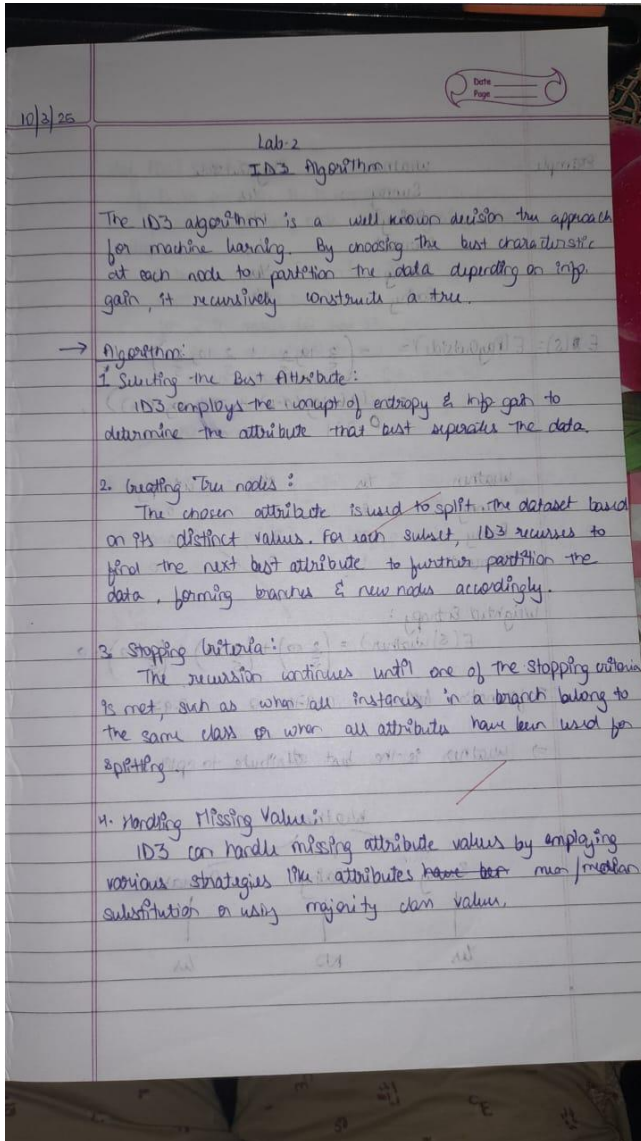 Date
Page
10/3/25
Lab-2
ID3 Algorithm
The ID3 algorithm is a well known decision tree approach
for machine learning. By choosing the best characteristic
at each node to partition the data depending on info.
gain, it recursively constructs a tree.
→ Algorithm:
1. Selecting the Best Attribute:
ID3 employs the concept of entropy & info gain to
determine the attribute that best seperates the data.
2. Creating Tree nodes:
The chosen attribute is used to split the dataset based
on its distinct values. For each subset, ID3 recurses to
find the next best attribute to further partition the
data, forming branches & new nodes accordingly.
3. Stopping Criteria:
The recursion continues until one of the stopping criteria
is met, such as when all instances in a branch belong to
the same class or when all attributes have been used for
splitting.
4. Handling Missing Value:
ID3 can handle missing attribute values by employing
various strategies like attributes have been mean/median
substitution or using majority class values.